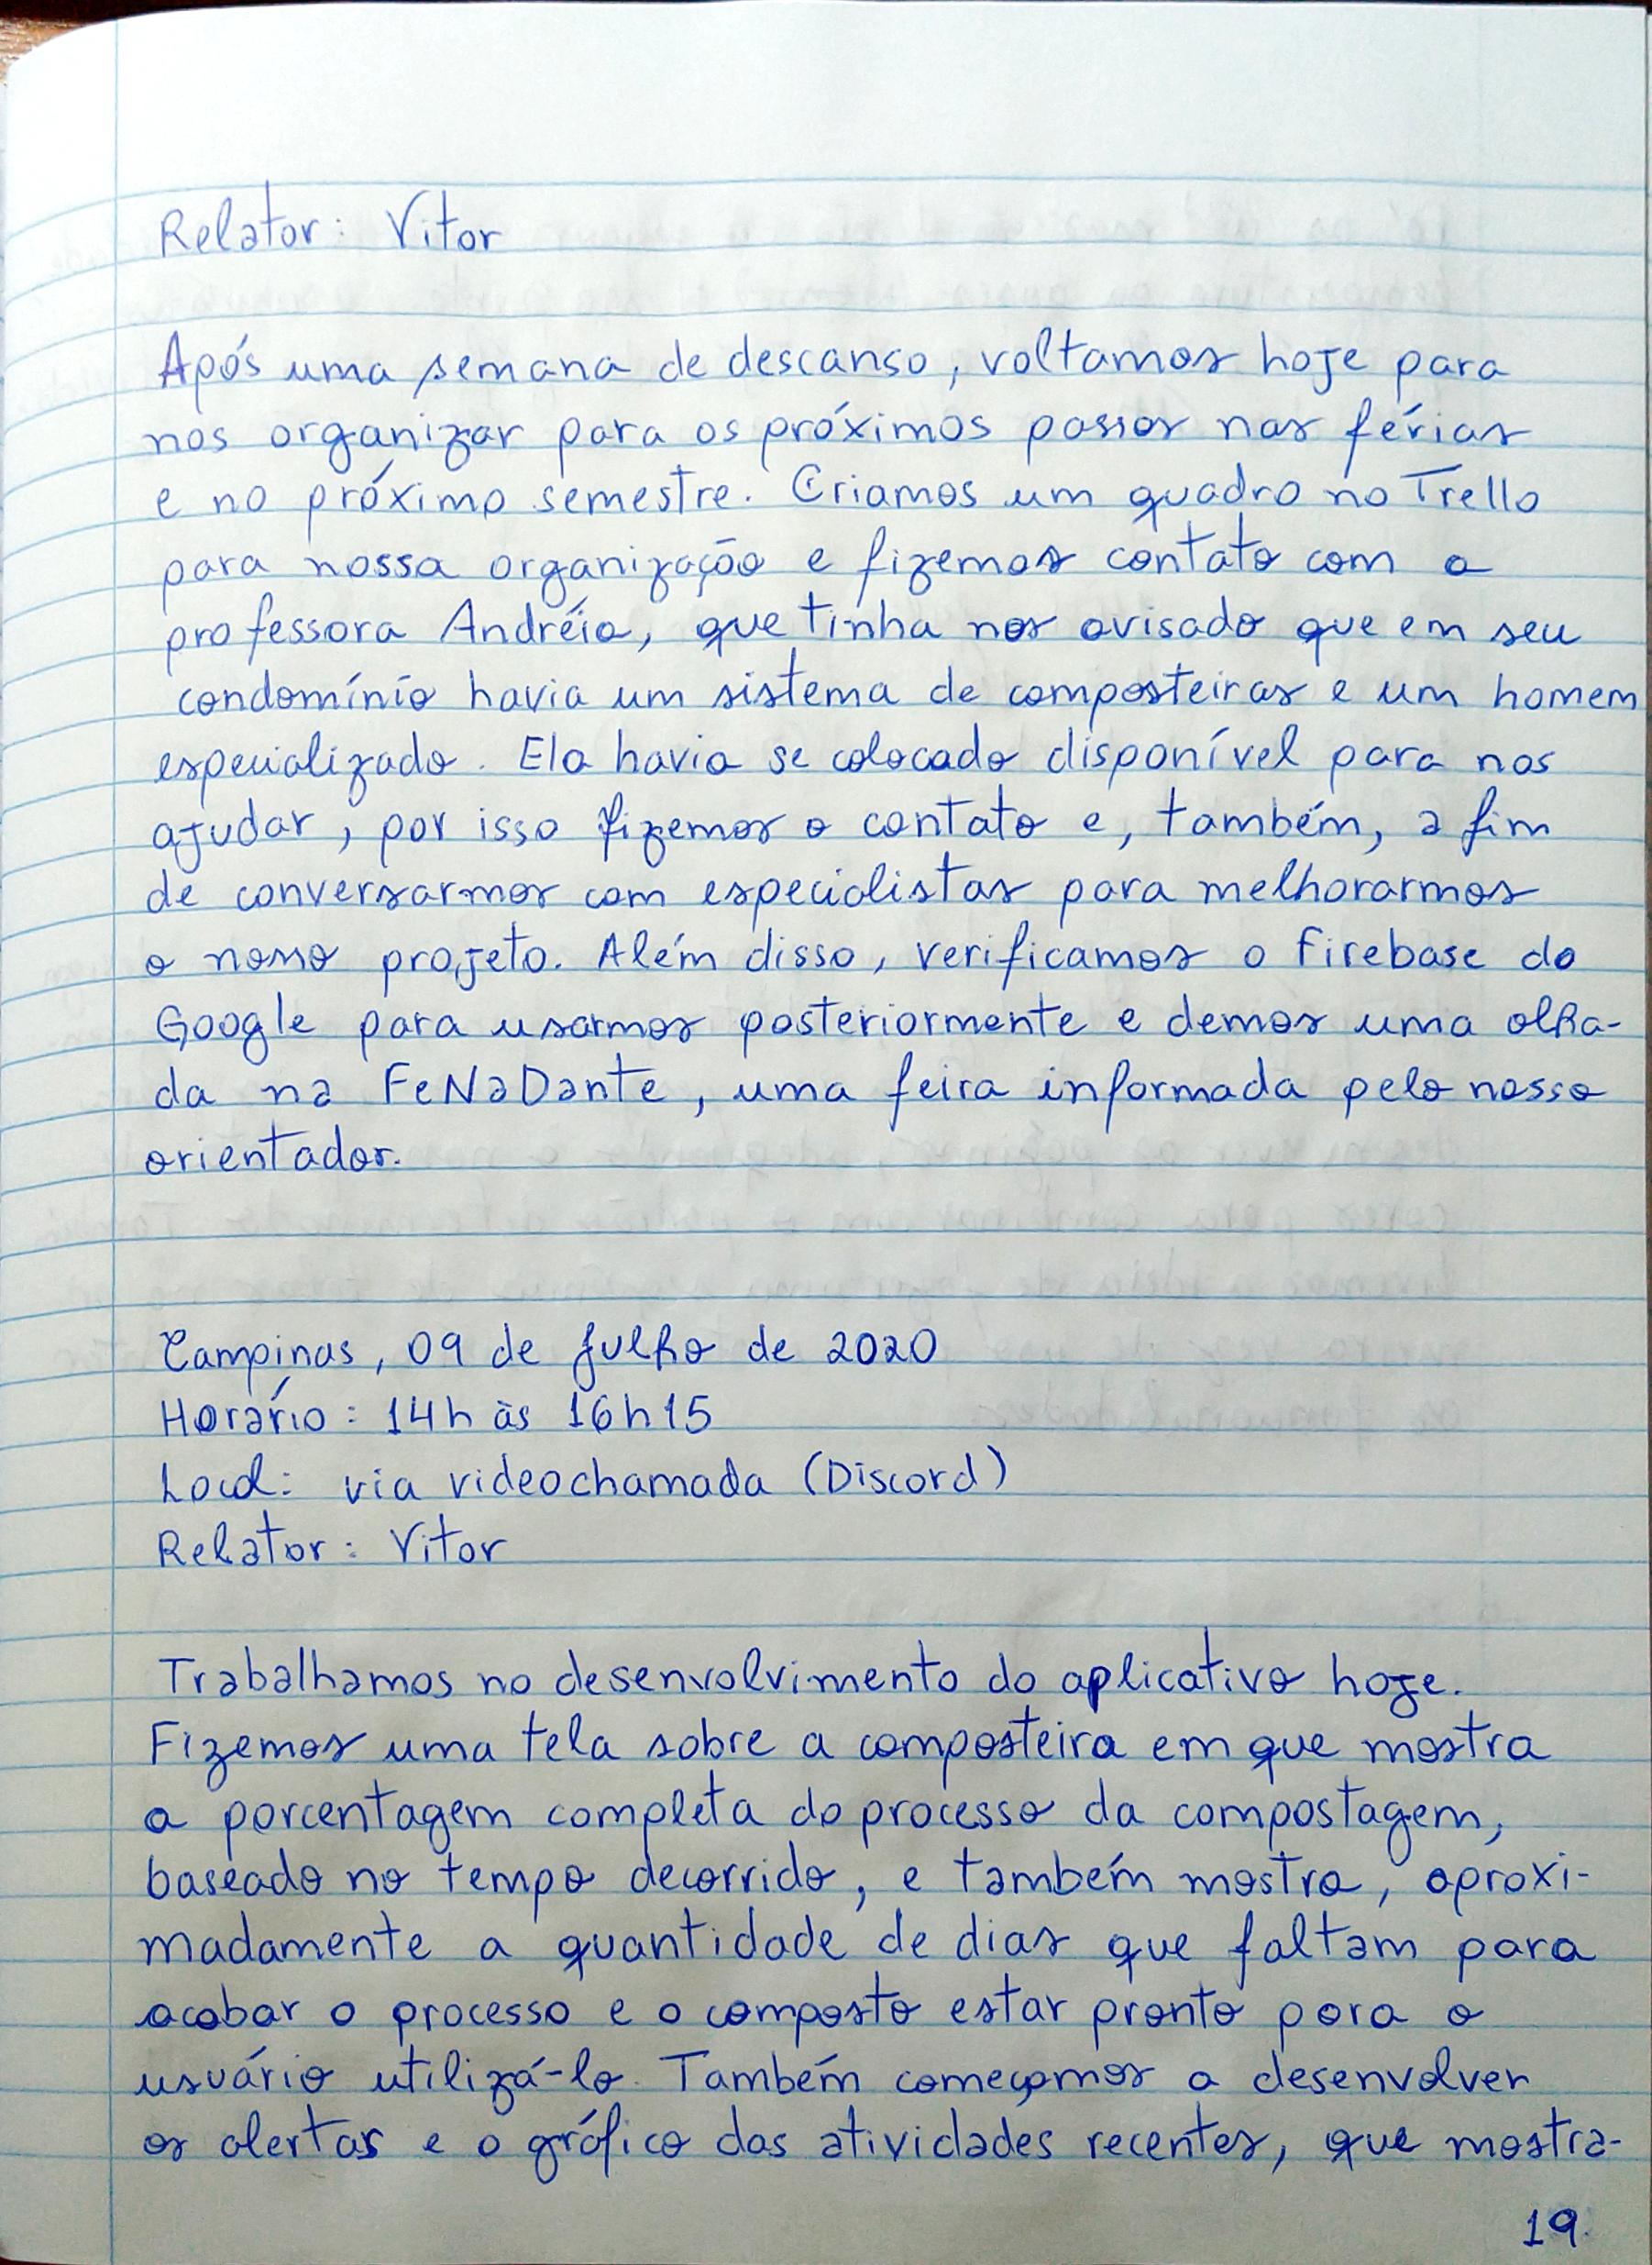 Relator: Vitor
Após uma semana de descanso, voltamos hoje para
nos organizar para os próximos passos nas férias
e no próximo semestre. Criamos um quadro no Trello
para nossa organização e fizemos contato com a
professora Andréia, que tinha nos avisado que em seu
condomínio havia um sistema de composteiras e um homem
especializado. Ela havia se colocado disponível para nos
ajudar, por isso fizemos o contato e, também, a fim
de conversarmos com especialistas para melhorarmos
o nosso projeto. Além disso, verificamos o Firebase do
Google para usarmos posteriormente e demos uma olha-
da na FeNaDante, uma feira informada pelo nosso
orientador.
Campinas, 09 de julho de 2020
Horário: 14h às 16h15
Local: via videochamada (Discord)
Relator: Vitor
Trabalhamos no desenvolvimento do aplicativo hoje.
Fizemos uma tela sobre a composteira em que mostra
a porcentagem completa do processo da compostagem,
baseado no tempo decorrido, e também mostra, aproxi-
madamente a quantidade de dias que faltam para
acabar o processo e o composto estar pronto para o
usuário utilizá-lo. Também começamos a desenvolver
os alertas e o gráfico das atividades recentes, que mostra-
19